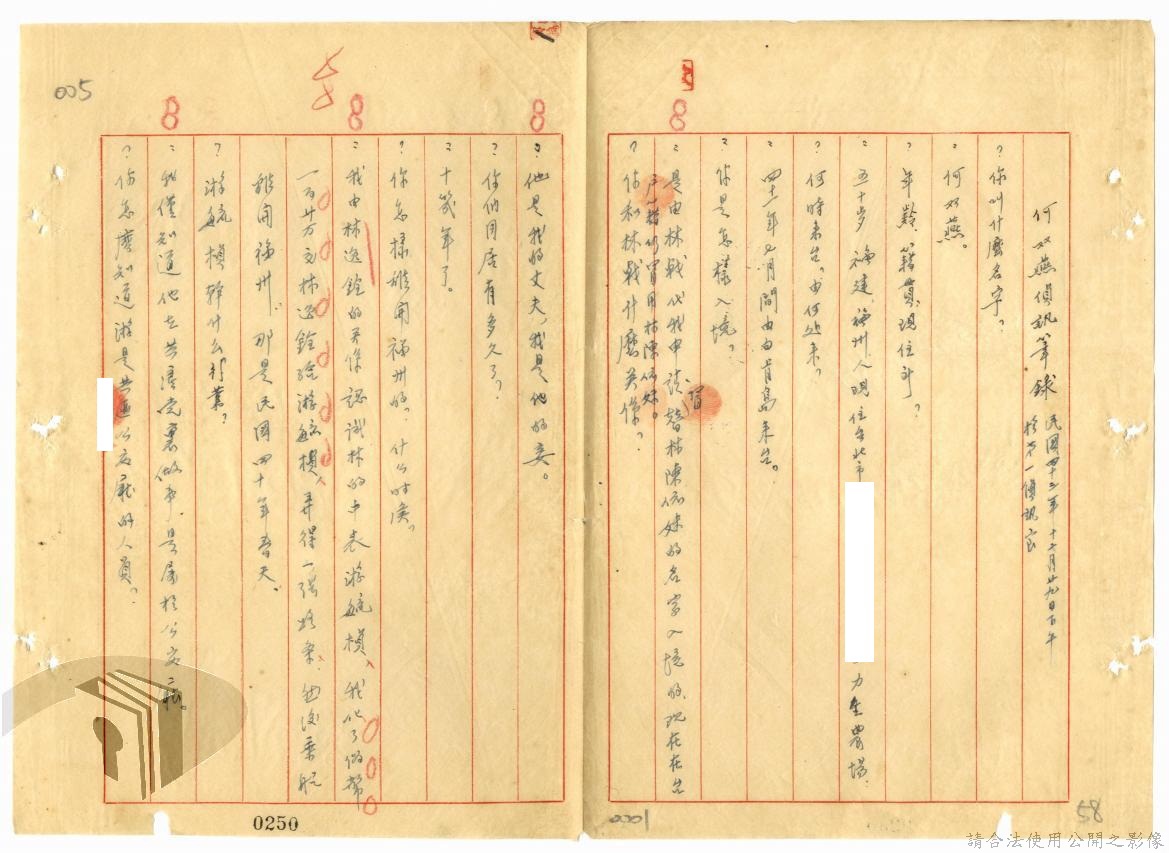 何双燕偵訊筆錄 民國四十三年十二月廿九日下午
於第一偵訊室
？你叫什麼名字？
：何双燕。
？年齡籍貫現住所？
：五十岁福建福州人現住台北市 力生農場
？何時來台。由何处來。
：四十一年七月間由白肯島來台。
？你是怎樣入境。
：是由林戟代我申請替林陳依妹的名字入境的現在在台
戶籍仍冒用林陳依妹。
？你和林戟什麼关係？
：他是我的丈夫，我是他的妾。
？你們同居有多久了？
：十幾年了。
？你怎樣離開福州的，什么时候。
：我由林逸銓的关係認識林的中表游毓楨、我化了偽幣
一百廿万元林逸銓給游毓楨、弄得一張路条、然後乘船
離開福州，那是民國四十年春天。
？游毓楨幹什么行業？
：我僅知道他在共產党裏做事是属於公安廳。
？你怎麼知道游是共匪公安廳的人員？
005
8
8
8
8
0250
0001
58
請合法使用公開之影像